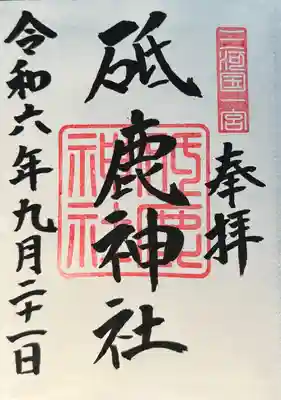 三河国一宮
奉拝
砥鹿神社
砥鹿神社
令和六年九月二十一日